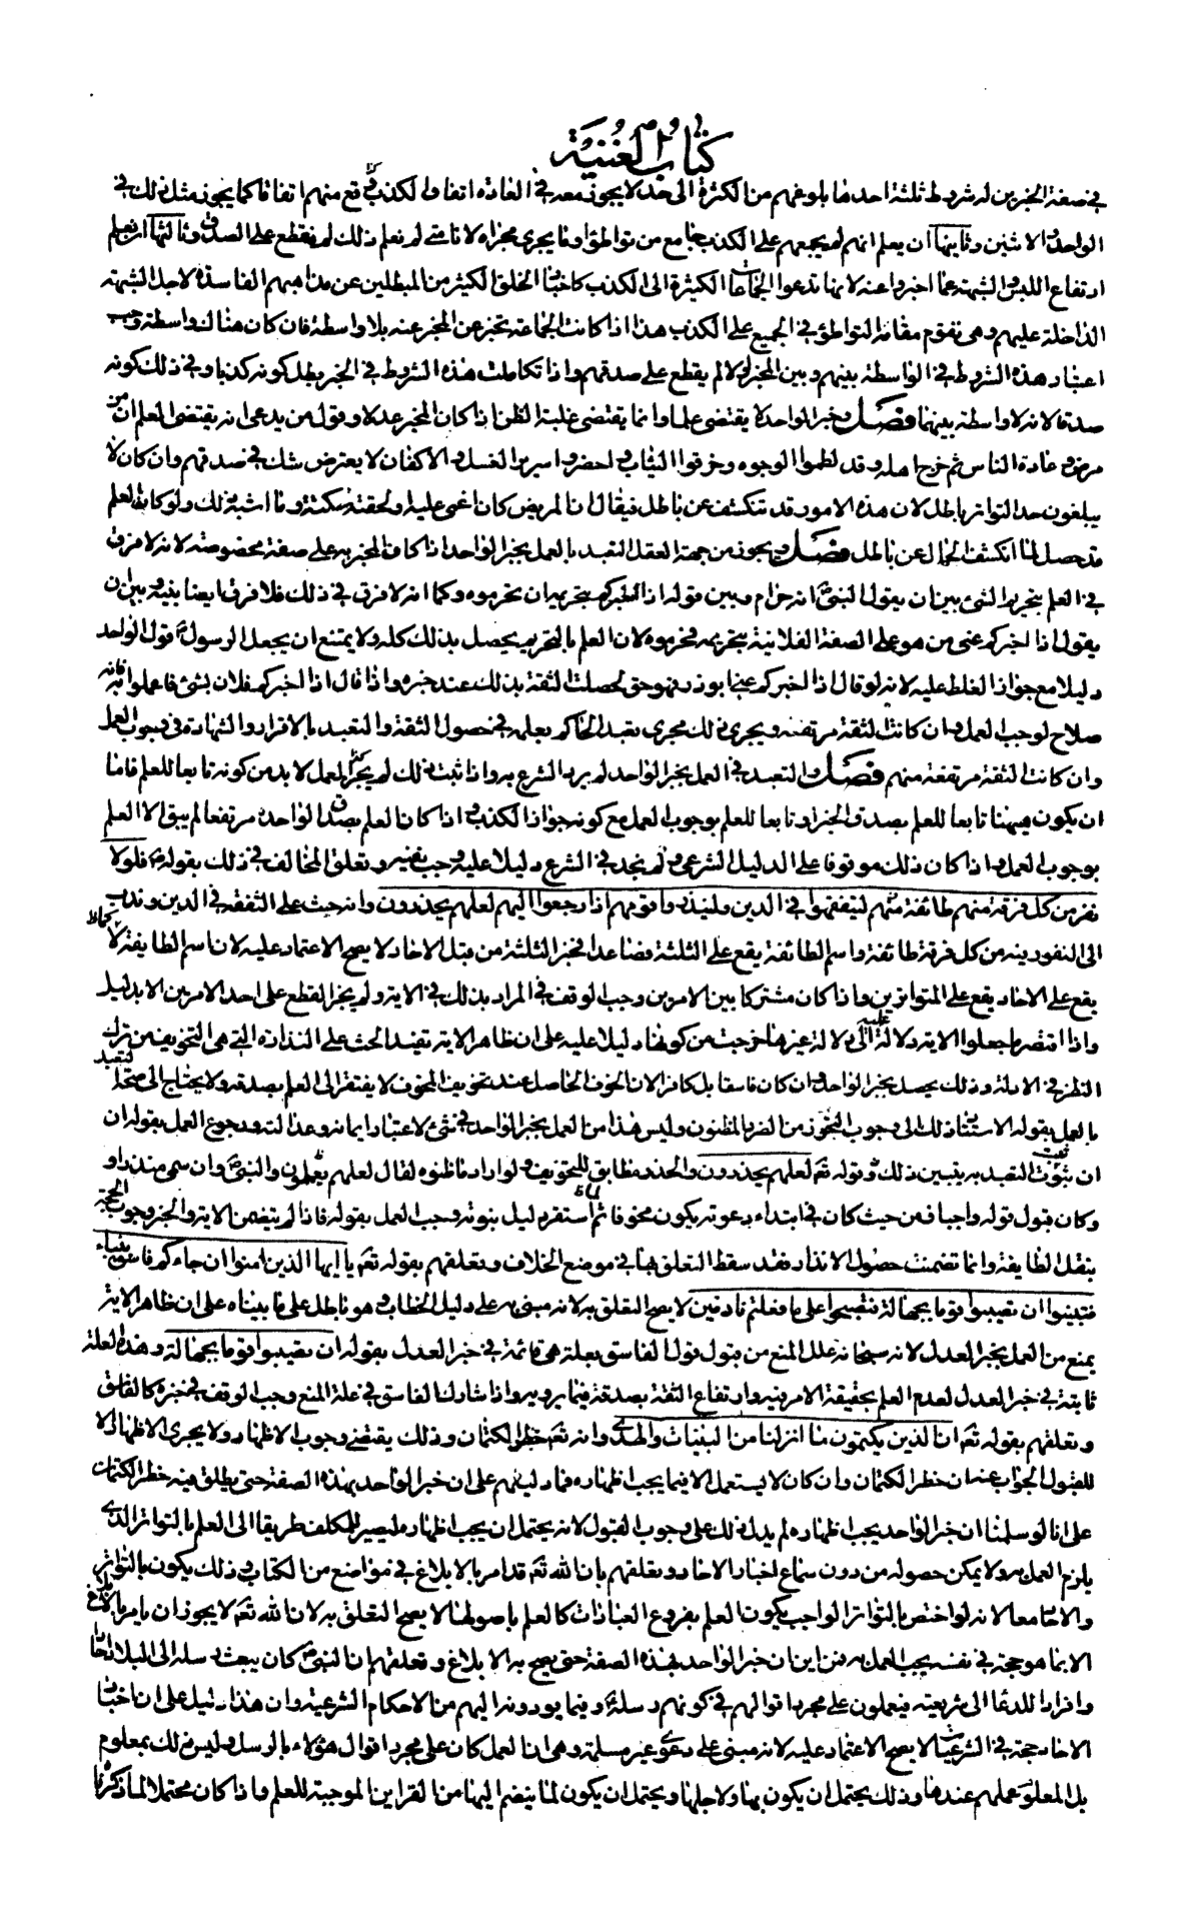 كتاب الغنية
في صفة المخبرين له شروط ثلثة احدها بلوغهم من الكثرة الى حد لا يجوز معه في العادة اتفاق الكذب كما يقع منهم اتفاقا كما يجوز مثل ذلك في
الواحد والاثنين وثانيها ان يعلم انهم لم يجمعهم على الكذب جامع من تواطؤ او ما يجري مجراه لانا متى لم نعلم ذلك لم نقطع على الصدق وثالثها ان نعلم
ارتفاع اللبس والشبهة عما اخبروا عنه لانها تدعوا الجماعات الكثيرة الى الكذب كاخبار الخلق الكثير من المبطلين عن مذاهبهم الفاسدة لاجل الشبهة
الداخلة عليهم وهي تقوم مقام التواطؤ في الجميع على الكذب هذا اذا كانت الجماعة تخبر عن المخبر عنه بلا واسطة فان كان هناك واسطة وجب
اعتبار هذه الشروط في الواسطة بينهم وبين المخبر والا لم يقطع على صدقهم واذا تكاملت هذه الشروط في الخبر بطل كونه كذبا وفي ذلك كونه
صدقا لانه لا واسطة بينهما فصل وخبر الواحد لا يقتضي علما وانما يقتضي غلبة الظن اذا كان المخبر عدلا وقول من يدعى انه يقتضي العلم ان من
مرض وعادة الناس ثم خرج اهله وقد لطموا الوجوه وخرقوا الثياب واحضروا سرير الغسل والاكفان لا يعترض شك في صدقهم وان كان لا
يبلغون حد التواتر باطل لان هذه الامور قد تنكشف عن باطل فيقال ان المريض كان اغمي عليه ولحقته سكتة وما اشبه ذلك ولو كان العلم
قد حصل لما انكشف الحال عن باطل فصل ويجوز من جهة العقل التعبد بالعمل بخبر الواحد اذا كان المخبر به على صفة مخصوصة لانه لا فرق
في العلم بتحريم الشئ بين ان يقول النبي ص انه حرام وبين قوله اذا اخبركم بتحريم ان تحرموه وكما انه لا فرق في ذلك فلا فرق ايضا بينه وبين ان
يقول اذا اخبركم عني من هو على الصفة الفلانية بتحريمه فحرموه لان العلم بالتحريم يحصل بذلك كله ولا يمتنع ان يجعل الرسول ص قول الواحد
دليلا مع جواز الغلط عليه لانه لو قال اذا اخبركم عني ابوذر فهو حق لحصلت الثقة بذلك عند خبره واذا قال اذا اخبركم فلان بشئ فاعملوا به فانه
صلاح لوجب العمل وان كانت الثقة مرتفعة ويجري ذلك مجرى تعبد الحاكم بعلمه في حصول الثقة والتعبد بالاقرار والشهادة في وجوب العمل
وان كانت الثقة مرتفعة منهم فصل والتعبد في العمل بخبر الواحد لم يرد الشرع به واذا ثبت ذلك لم يجز العمل لا بد من كونه تابعا للعلم فاما
ان يكون هيهنا تابعا للعلم بصدق الخبر او تابعا للعلم بوجوب العمل مع كونه جواز الكذب اذا كان العلم بصدق الواحد مرتفعا لم يبق الا العلم
بوجوب العمل واذا كان ذلك موقوفا على الدليل الشرعي ولم نجد في الشرع دليلا عليه وجب نفيه وتعلق المخالف في ذلك بقوله تع فلولا
نفر من كل فرقة منهم طائفة منهم ليتفقهوا في الدين ولينذروا قومهم اذا رجعوا اليهم لعلهم يحذرون وانه حث على التفقه في الدين وندب
الى النفور بينه من كل فرقة طائفة واسم الطائفة يقع على الثلثة فصاعدا فخبر الثلثة من قبل الاحاد لا يصح الاعتماد عليه لان اسم الطايفة لا كما
يقع على الاحاد يقع على المتواترين واذا كان مشتركا بين الامرين وجب الوقف في المراد بذلك في الاية ولم يجز القطع على احد الامرين الا بدليل
واذا افتقر ما جعلوا الاية دلالة عليه الى دلالة غيرها خرجت من كونها دليلا عليه على ان ظاهر الاية تفيد الحث على النذارة التي هي التخويف من ترك
النظر في الادلة وذلك يحصل بخبر الواحد وان كان فاسقا بل كافرا لان الخوف الحاصل عند تخويف المخوف لا يفتقر الى العلم بصدقه ولا يحتاج الى صحة التعبد
بالعمل بقوله لاستناد ذلك الى وجوب التحرز من الضرر المظنون وليس هذا من العمل بخبر الواحد في شئ لاعتبار ايمانه وعدالته ورجوع العمل بقوله ان
ان ثبوت التعبد به يتبين ذلك قوله تع لعلهم يحذرون والحذر مطابق للتخويف ولو اراد ما ظنوه لقال لعلهم يعملون والنبي ص وان سمي منذرا و
وكان قبول قوله واجبا فمن حيث كان في ابتداء دعوته يكون مخوفا ثم اذا استقر دليل نبوته وجب العمل بقوله فاذا لم يتضمن الاية والخبر وجوب الحجة
بنقل الطايفة وانما تضمنت حصول الانذار فقد سقط التعلق بها في موضع الخلاف وتعلقهم بقوله تع يا ايها الذين امنوا ان جاءكم فاسق بنباء
فتبينوا ان تصيبوا قوما بجهالة فتصبحوا على ما فعلتم نادمين لا يصح التعلق به لانه مبنى على دليل الخطاب وهو باطل على ما بيناه على ان ظاهر الاية
يمنع من العمل بخبر العدل لانه سبحانه علل المنع من قبول قول الفاسق بعلة هي قائمة في خبر العدل بقوله ان تصيبوا قوما بجهالة وهذه العلة
ثابتة في خبر العدل لعدم العلم بحقيقة الامر فيه وارتفاع الثقة بصدقه فيما يرويه واذا شارك الفاسق في علة المنع وجب الوقف في خبره كالفاسق
وتعلقهم بقوله تع ان الذين يكتمون ما انزلنا من البينات والهدى وانه تع حظر الكتمان وذلك يقتضي وجوب الاظهار ولا يجري الاظهار الا
للقبول الجواب عنه ان حظر الكتمان وان كان لا يستعمل الا فيما يجب اظهاره فما دليلهم على ان خبر الواحد بهذه الصفة حتى يطلق فيه حظر الكتمان
على انا لو سلمنا ان خبر الواحد يجب اظهاره لم يدل ذلك على وجوب القبول لانه يحتمل ان يجب اظهاره ليصير للمكلف طريقا الى العلم بالتواتر الذي
يلزم العمل به ولا يمكن حصوله من دون سماع اخبار الاحاد وتعلقهم بان الله تع قد امر بالابلاغ في مواضع من الكتاب وذلك يكون بالتواتر
والاحاد معا لانه لو اختص بالتواتر الواجب يكون العلم بفروع العبادات كالعلم باصولها لا يصح التعلق به لان الله تع لا يجوز ان يامر بالابلاغ
الا بما هو حجة في نفسه يجب العمل به فمن اين ان خبر الواحد بهذه الصفة حتى يصح به الابلاغ وتعلقهم بان النبي ص كان يبعث رسله الى البلاد احادا
وافرادا للدعاء الى شريعته فيعملون على مجرد اقوالهم في كونهم رسله وفيما يوردونه اليهم من الاحكام الشرعية وان هذا دليل على ان اخبار
الاحاد حجة في الشرعيات لا يصح الاعتماد عليه لانه مبنى على دعوى غير مسلمة وهي ان العمل كان على مجرد اقوال هؤلاء بالرسل وليس ذلك بمعلوم
بل المعلوم عملهم عندها وذلك يحتمل ان يكون بها ولاجلها ويحتمل ان يكون لما ينضم اليها من القراين الموجبة للعلم واذا كان محتملا لما ذكرنا